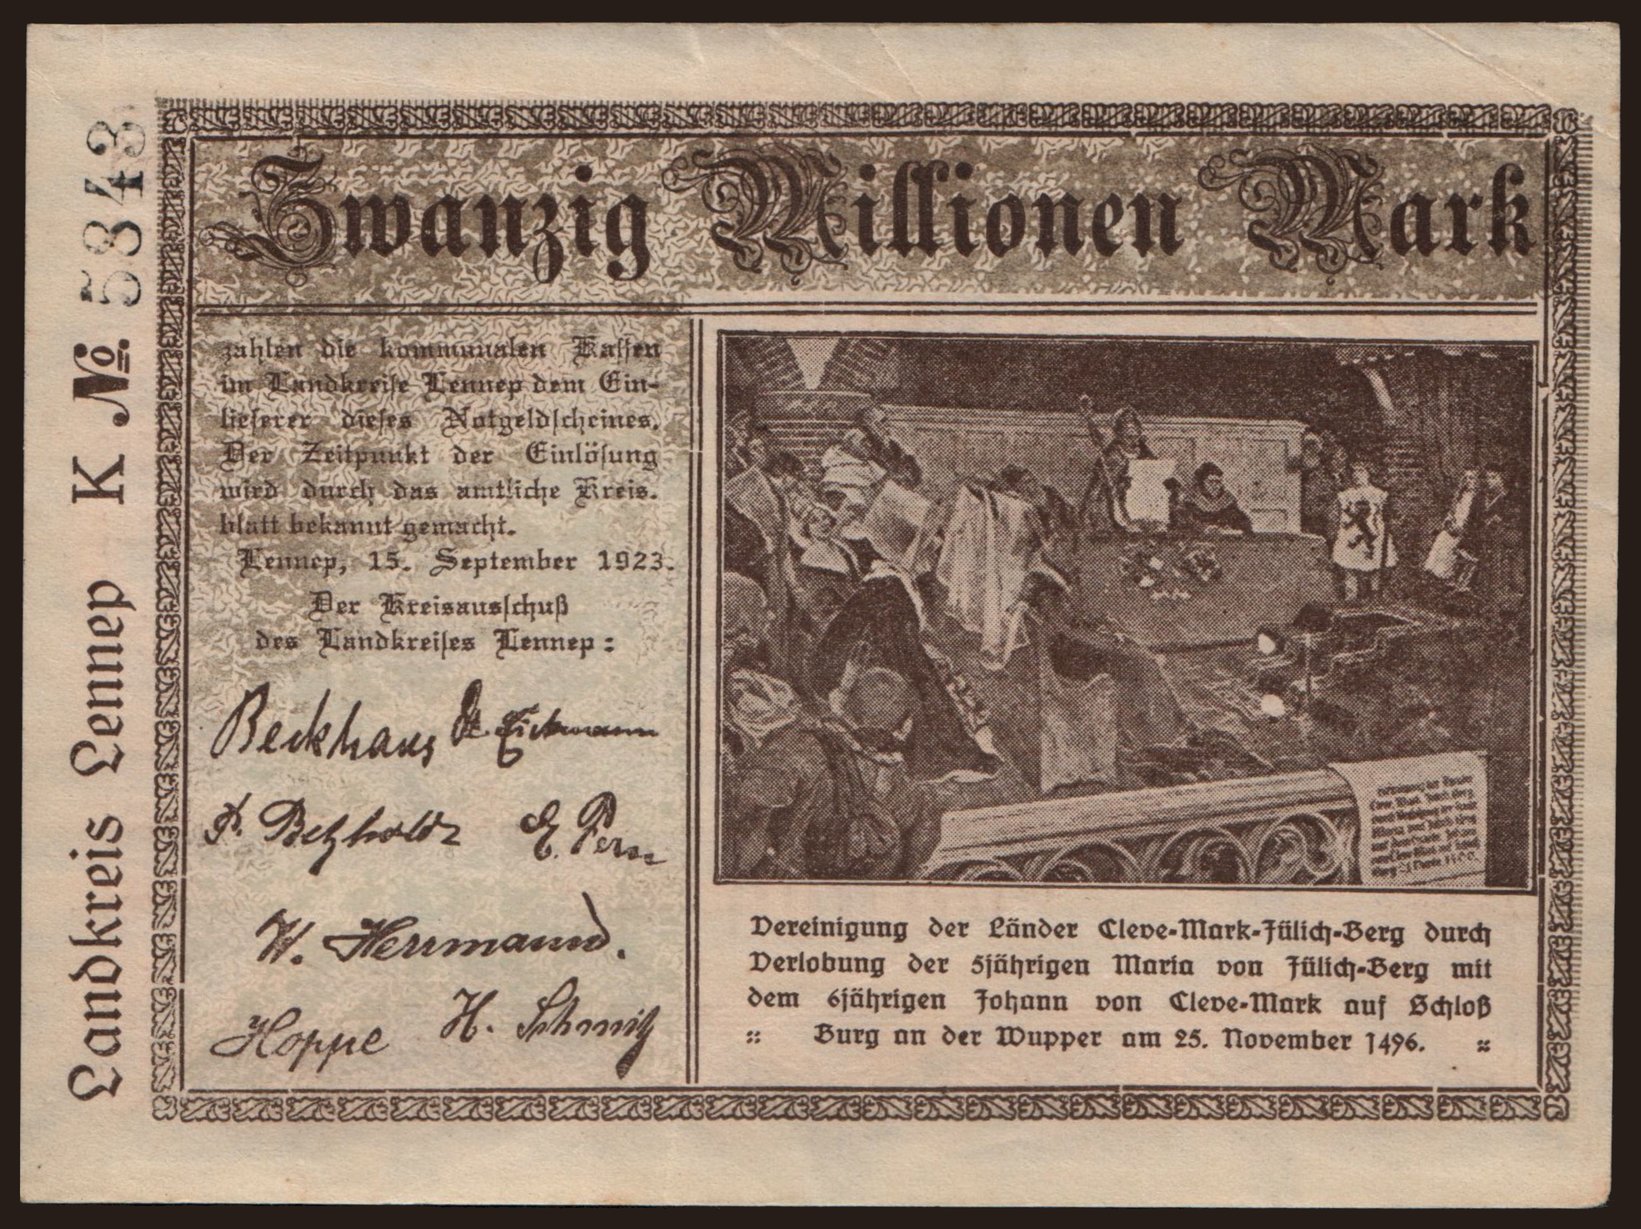 Landkreis Lennep K No. 5843
Zwanzig Millionen Mark
zahlen die kommunalen Kassen
im Landkreise Lennep dem Ein-
lieferer dieses Notgeldscheines.
Der Zeitpunkt der Einlösung
wird durch das amtliche Kreis-
blatt bekannt gemacht.
Lennep, 15. September 1923.
Der Kreisausschuß
des Landkreises Lennep:
Beckhaus
W. Herrmann.
Hoppe H. Schmitz
Vereinigung der Länder Cleve-Mark-Jülich-Berg durch
Verlobung der 5jährigen Maria von Jülich-Berg mit
dem 6jährigen Johann von Cleve-Mark auf Schloß
Burg an der Wupper am 25. November 1496.